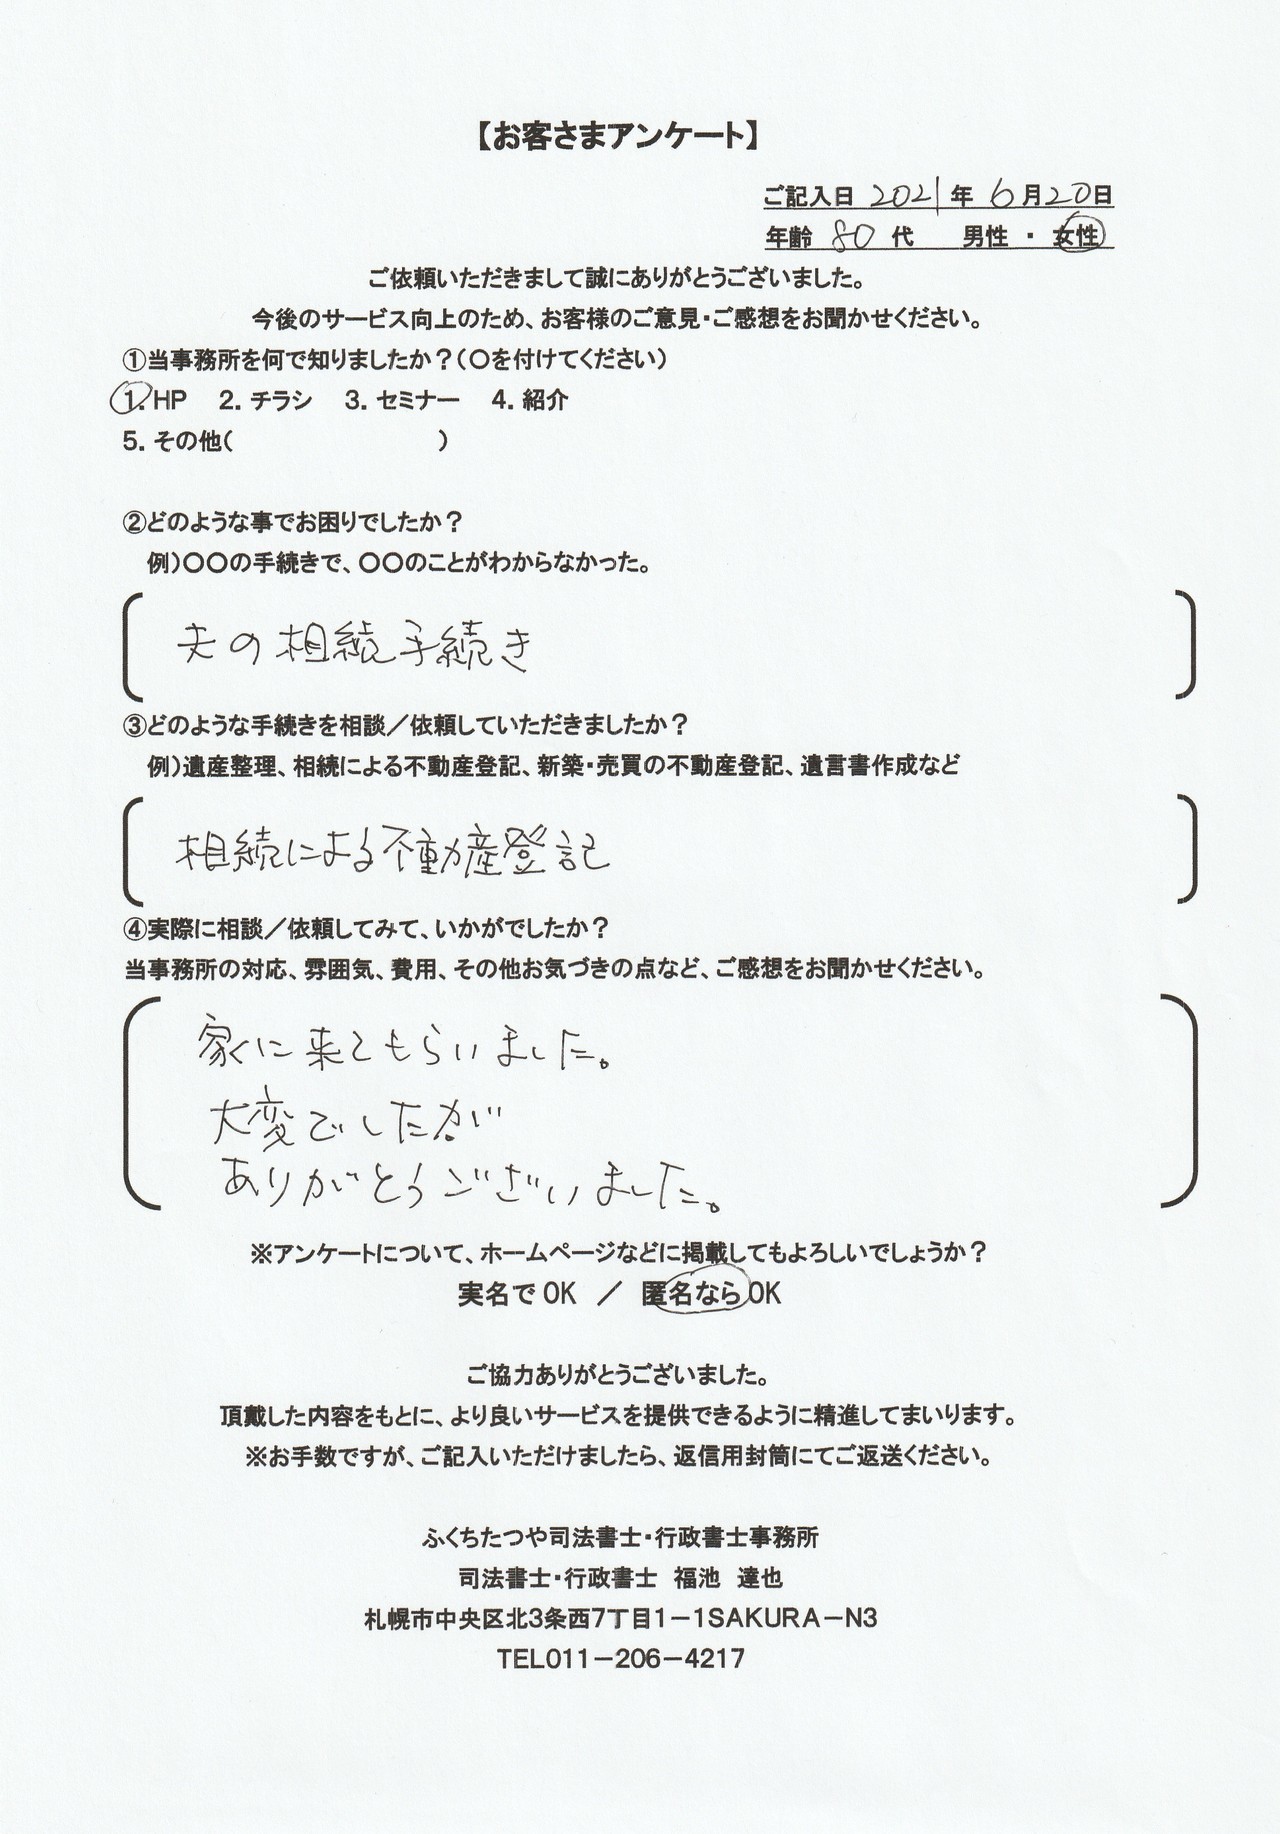 【お客さまアンケート】
ご記入日 2021年 6月20日
年齢 80代 男性 ・ 女性
ご依頼いただきまして誠にありがとうございました。
今後のサービス向上のため、お客様のご意見・ご感想をお聞かせください。
①当事務所を何で知りましたか？（〇を付けてください）
1. HP 2. チラシ 3. セミナー 4. 紹介
5. その他（ ）
②どのような事でお困りでしたか？
例）〇〇の手続きで、〇〇のことがわからなかった。
夫の相続手続き
③どのような手続きを相談／依頼していただきましたか？
例）遺産整理、相続による不動産登記、新築・売買の不動産登記、遺言書作成など
相続による不動産登記
④実際に相談／依頼してみて、いかがでしたか？
当事務所の対応、雰囲気、費用、その他お気づきの点など、ご感想をお聞かせください。
家に来てもらいました。
大変でしたが
ありがとうございました。
※アンケートについて、ホームページなどに掲載してもよろしいでしょうか？
実名でOK ／ 匿名ならOK
ご協力ありがとうございました。
頂戴した内容をもとに、より良いサービスを提供できるように精進してまいります。
※お手数ですが、ご記入いただけましたら、返信用封筒にてご返送ください。
ふくちたつや司法書士・行政書士事務所
司法書士・行政書士 福池 達也
札幌市中央区北3条西7丁目1－1SAKURA－N3
TEL011－206－4217